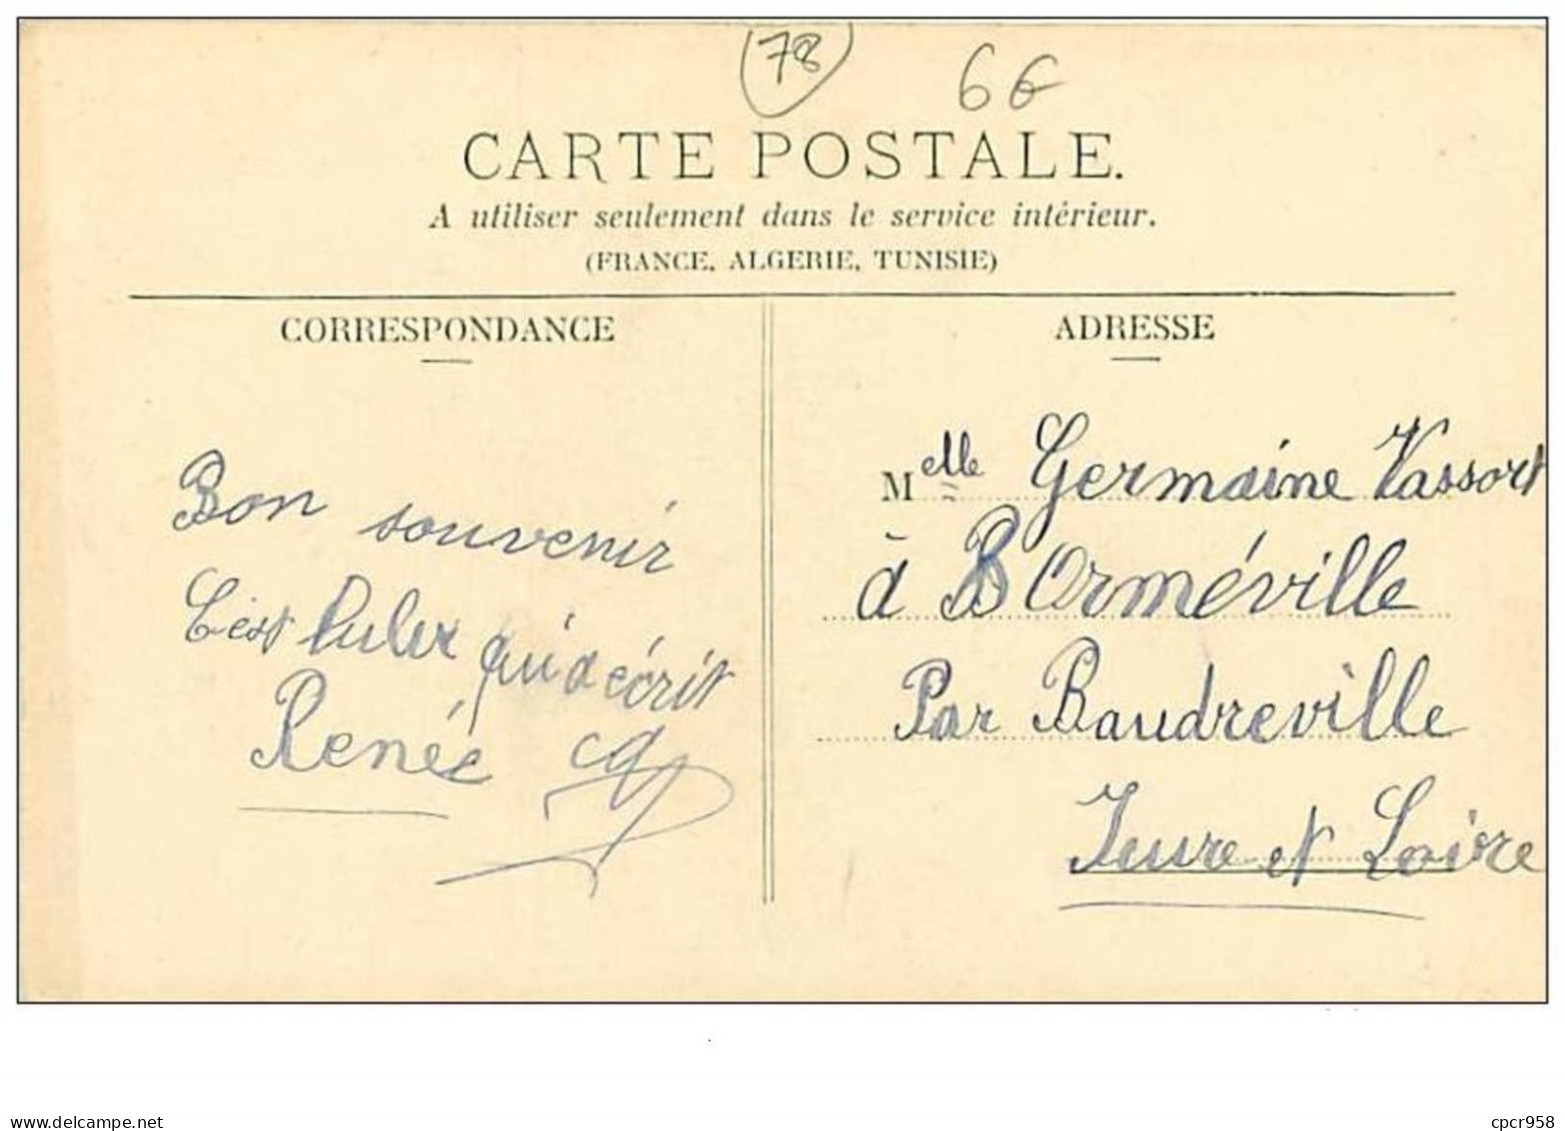 78
6€
CARTE POSTALE.
A utiliser seulement dans le service intérieur.
(FRANCE, ALGERIE, TUNISIE)
CORRESPONDANCE
Bon souvenir
C'est qui a écrit
Renée
ADRESSE
Melle Germaine Vassort
à B Orméville
Par Baudreville
Eure et Loire
www.delcampe.net
cpcr958